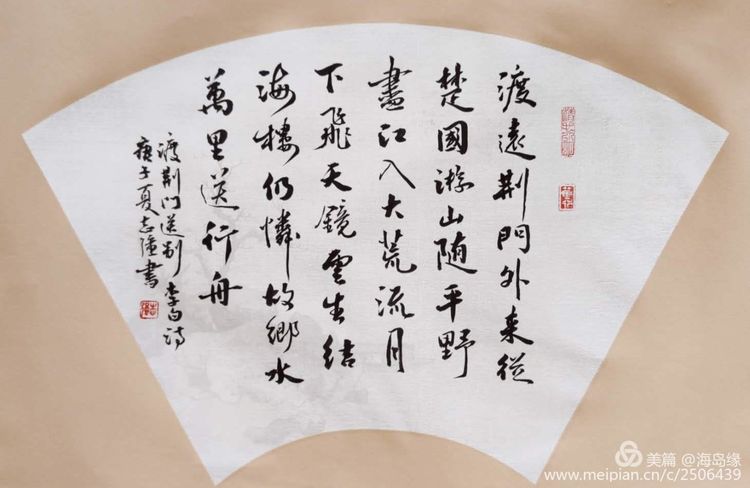 渡遠荆門外来從
楚國游山随平野
盡江入大荒流月
下飛天鏡雲生结
海樓仍憐故鄉水
萬里送行舟
渡荆门送别 李白诗
庚子夏志隆書
美篇 @海岛缘
www.meipian.cn/c/2506439